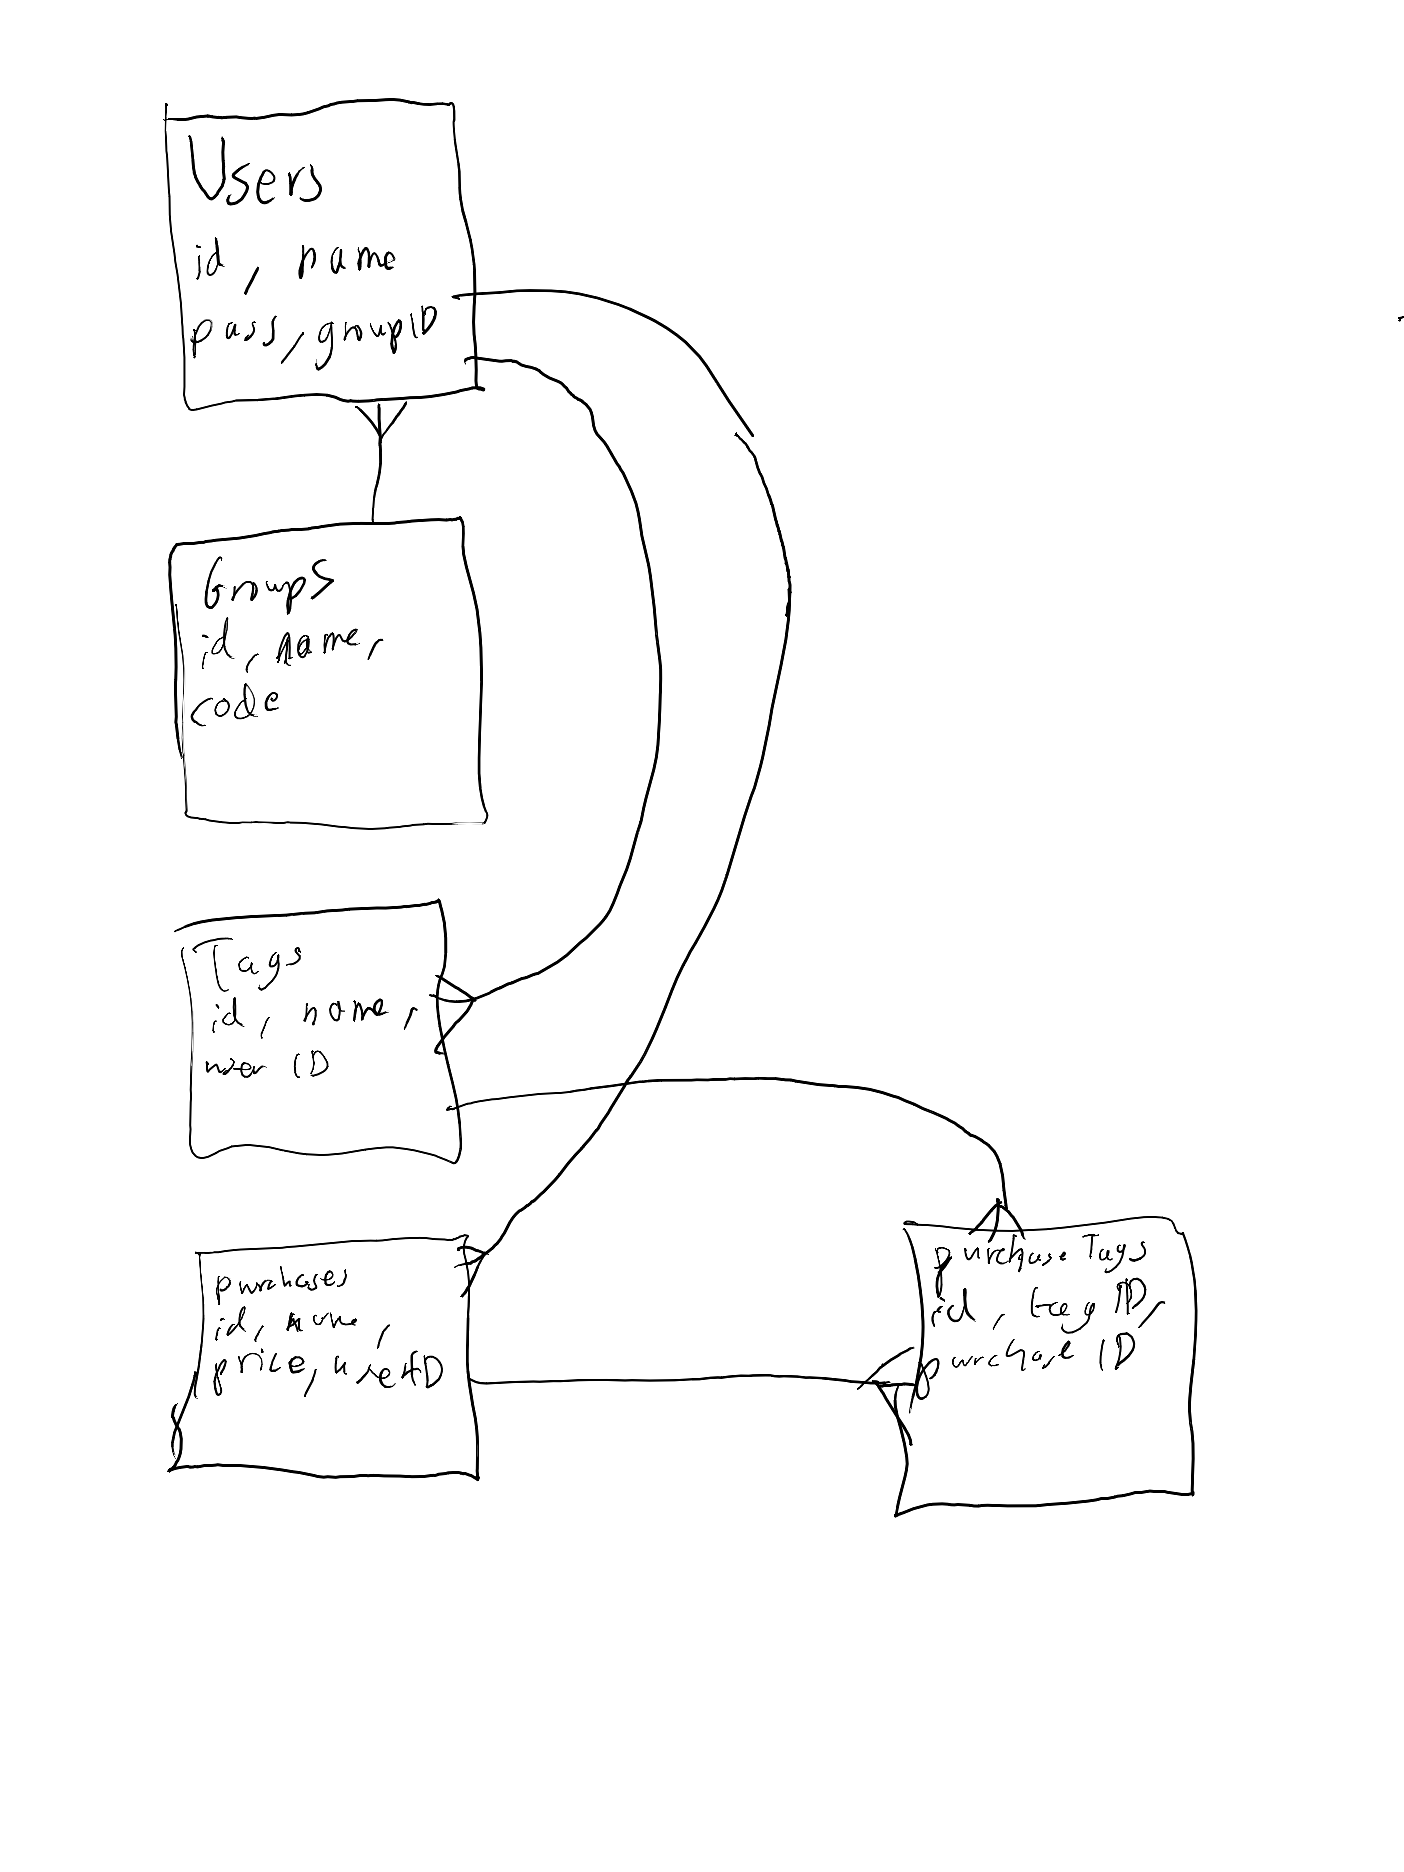 Users
id, name
pass, groupID
Groups
id, name,
code
Tags
id, name,
user ID
purchases
id, name,
price, userID
purchase Tags
id, tag ID,
purchase ID